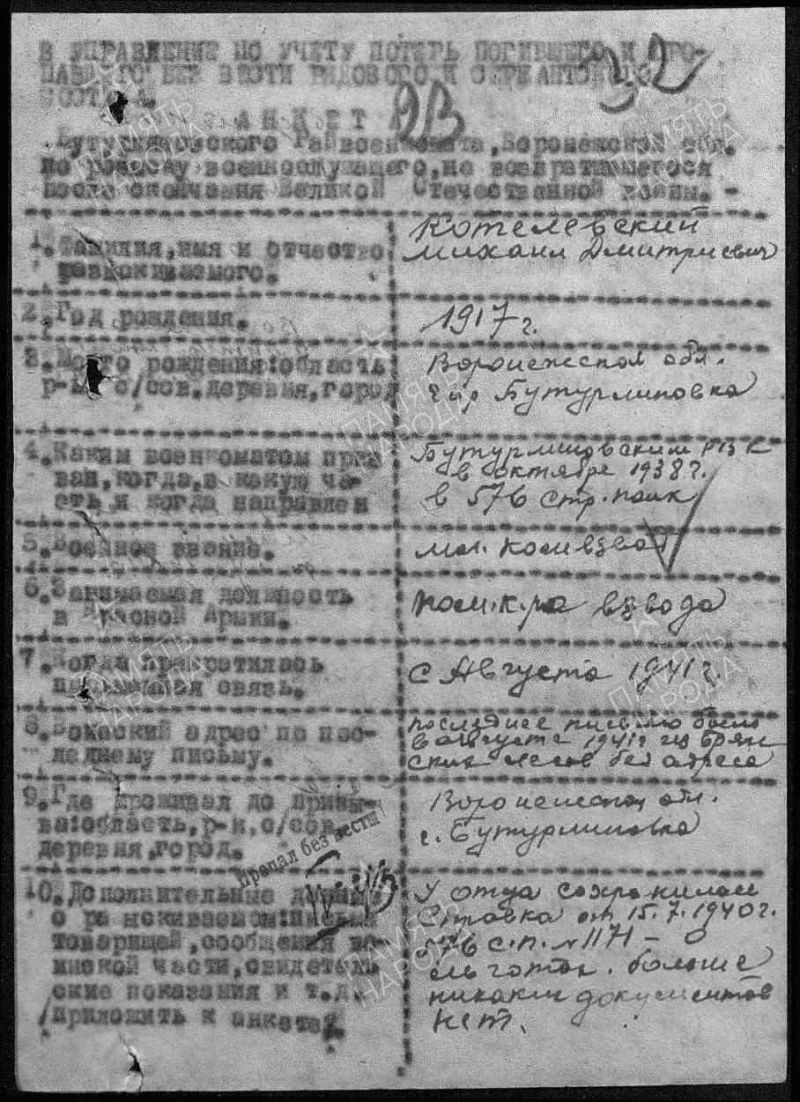 В УПРАВЛЕНИЕ ПО УЧЕТУ ПОТЕРЬ ПОГИБШЕГО И ПРО-
ПАВШЕГО БЕЗ ВЕСТИ РЯДОВОГО И СЕРЖАНТСКОГО
СОСТАВА.
32
АНКЕТА
Бутурлиновского Райвоенкомата, Воронежской обл.
по розыску военнослужащего, не возвратившегося
после окончания Великой Отечественной войны. -
1. Фамилия, имя и отчество
разыскиваемого.
Котелевский
Михаил Дмитриевич
2. Год рождения.
1917 г.
3. Место рождения: область
р-н, с/сов. деревня, город
Воронежской обл.
гор Бутурлиновка
4. Каким военкоматом приз
ван, когда, в какую ча-
сть и когда направлен
Бутурлиновским РВК
в октябре 1938 г.
в 576 стр. полк
5. Военное звание.
мл. комвзвод
6. Занимаемая должность
в Красной Армии.
пом. к-ра взвода
7. Когда прекратилась
письменная связь.
с Августа 1941 г.
8. Воинский адрес по пос-
леднему письму.
последнее письмо было
в августе 1941 г из Брян
ских лесов без адреса
9. Где проживал до призы-
ва: область, р-н, с/сов.
деревня, город.
Воронежской обл.
г. Бутурлиновка
Пропал без вести
10. Дополнительные данные
о разыскиваемом: письма
товарищей, сообщения во-
инской части, свидетель
ские показания и т.д.
приложить к анкете.
У отца сохранилась
Справка от 15.7.1940 г.
576 с.п. № 1171 - о
льготах. больше
никаких документов
нет.
ПАМЯТЬ
НАРОДА